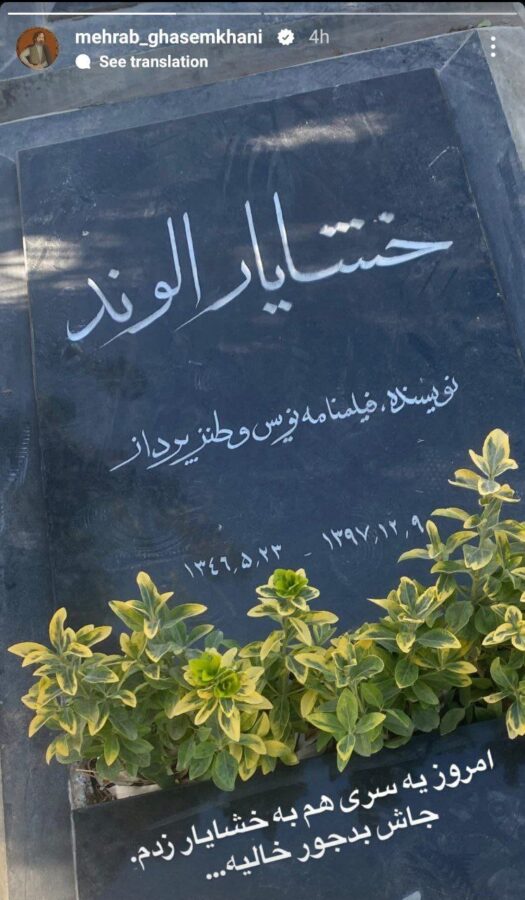 mehrab_ghasemkhani 4h
See translation
خشایار الوند
نویسنده، فیلمنامه نویس و طنزپرداز
۱۳٤۶٫۵٫۲۳ - ۱۳۹۷٫۱۲٫۹
امروز یه سری هم به خشایار زدم.
جاش بدجور خالیه...